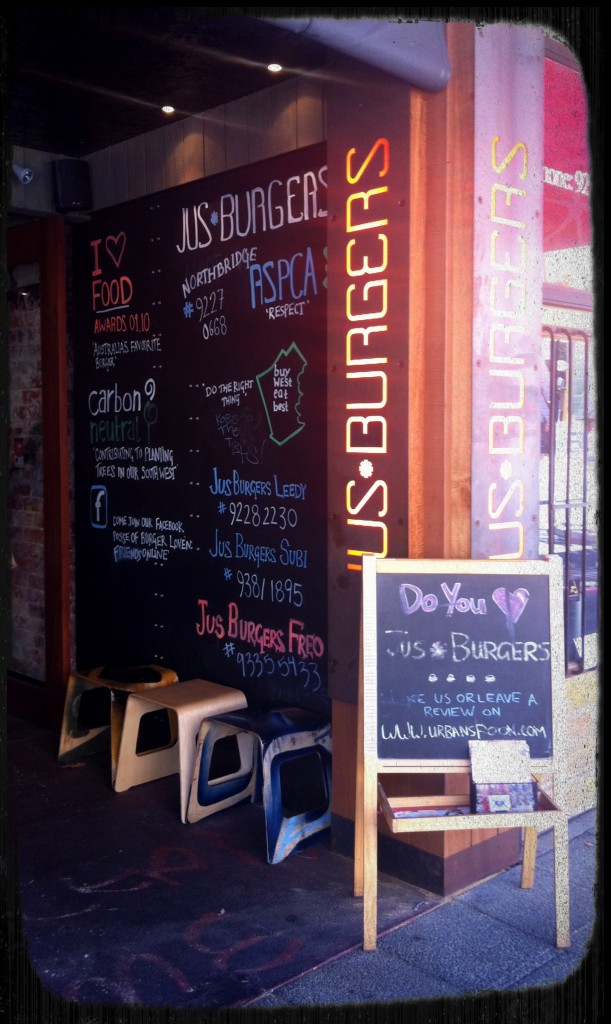 I ♡
FOOD
AWARDS 09.10
"AUSTRALIA'S FAVOURITE
BURGER"
carbon
neutral
"CONTRIBUTING TO PLANTING
TREES IN OUR SOUTHWEST"
f
COME JOIN OUR FACEBOOK
POSSE OF BURGER LOVEN
FRIENDS ONLINE"
JUS*BURGERS
NORTHBRIDGE
# 9227
0668
ASPCA
"RESPECT"
"DO THE RIGHT
THING"
buy
west
eat
best
JUS BURGERS LEEDY
# 9228 2230
JUS BURGERS SUBI
# 9381 1895
JUS BURGERS FREO
# 9335 5433
JUS*BURGERS
US*BURGERS
one: 92
DO YOU ♡
JUS*BURGERS
LIKE US OR LEAVE A
REVIEW ON
WWW.URBANSPOON.COM